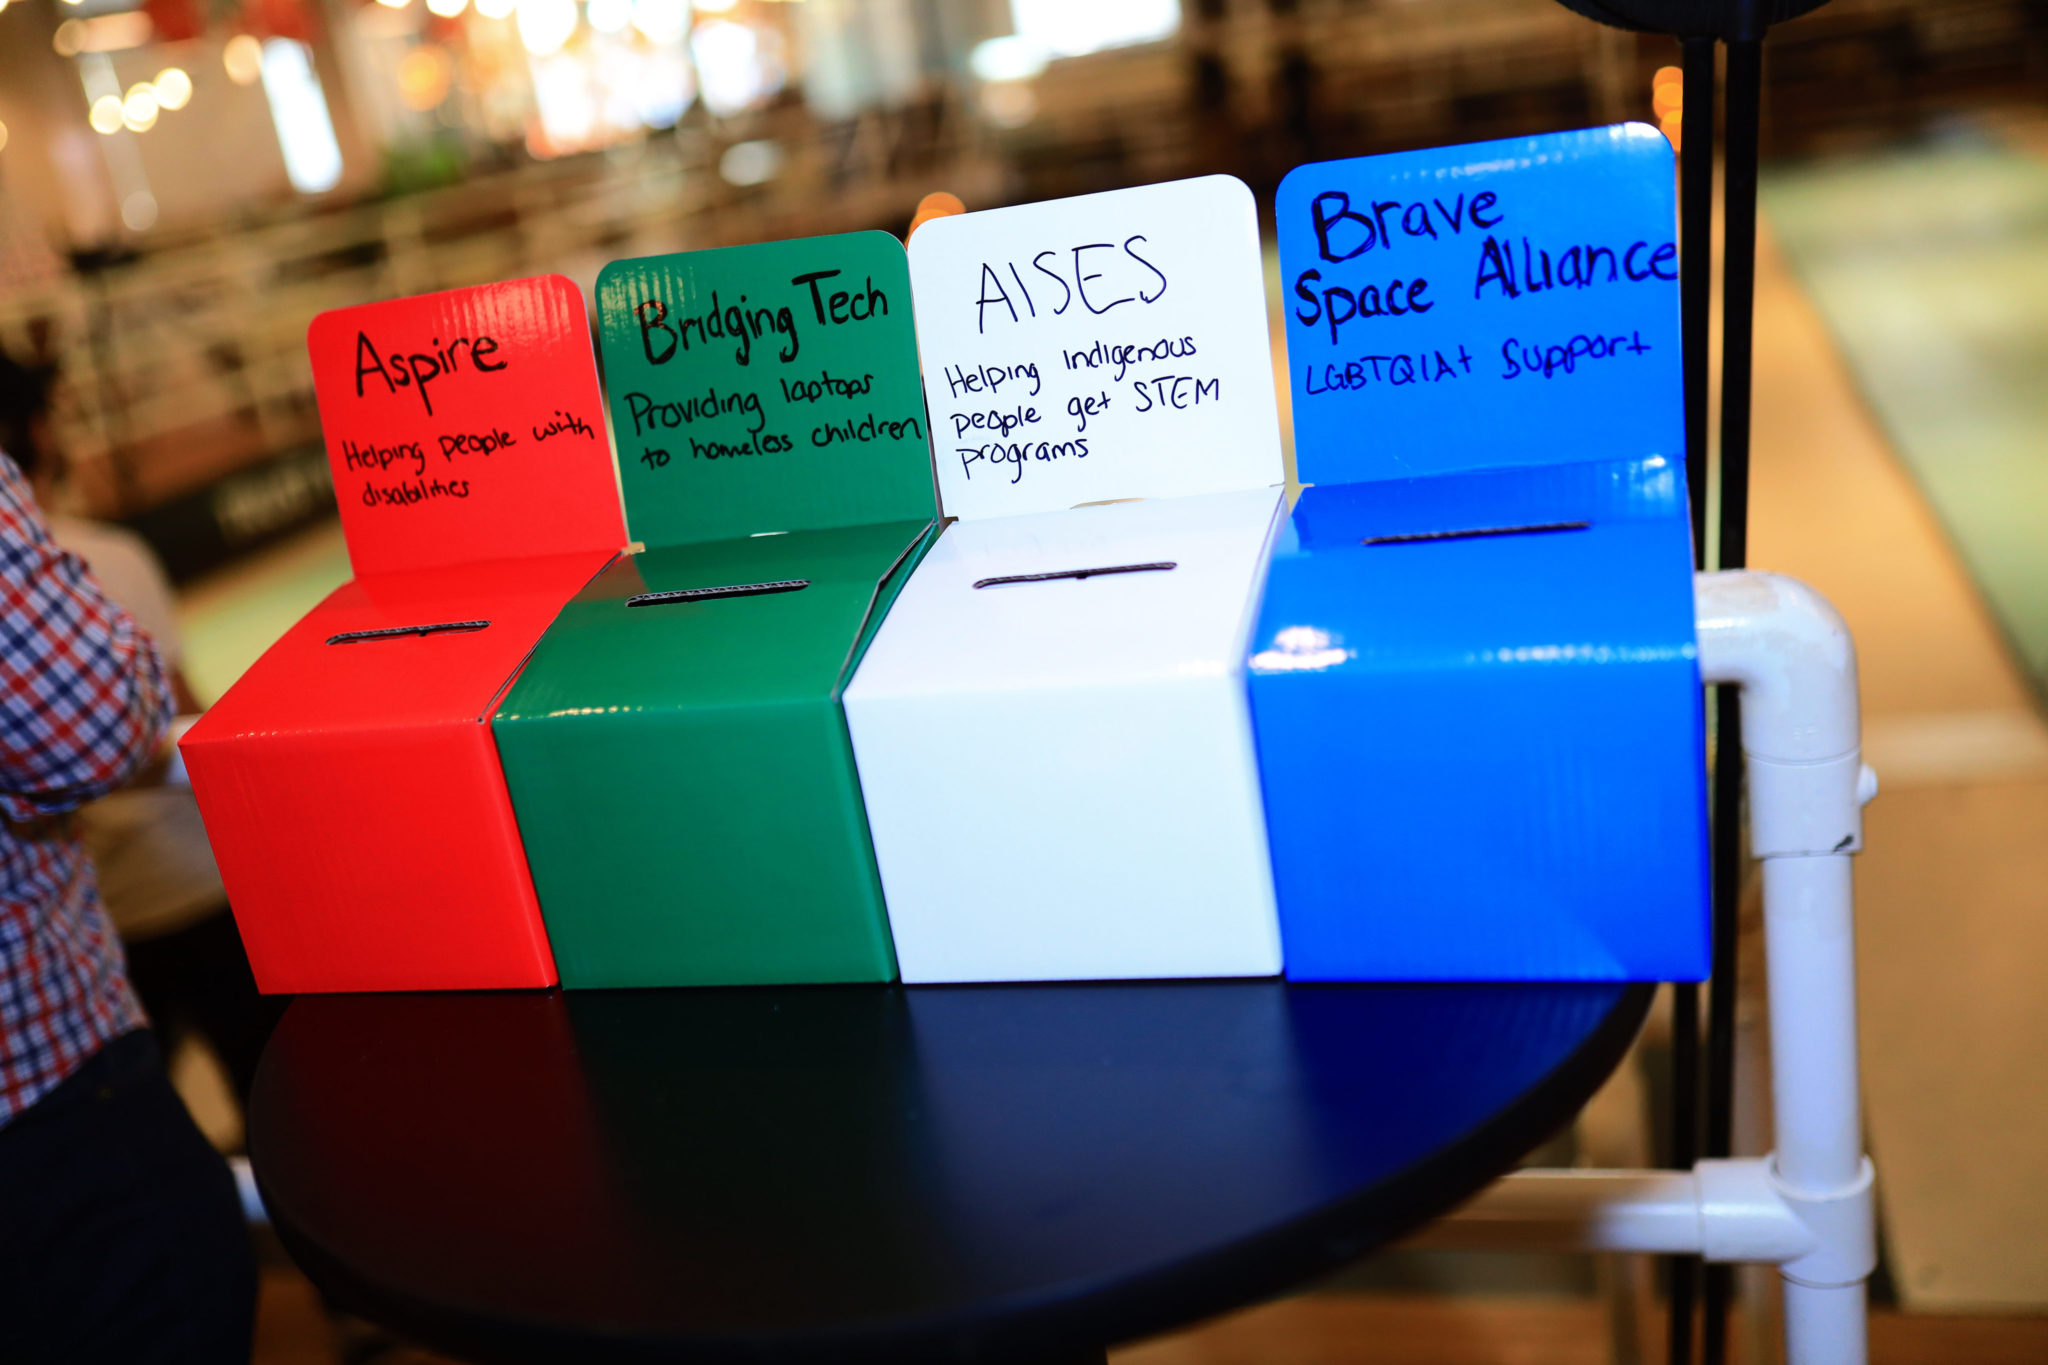 Aspire
Helping people with
disabilities
Bridging Tech
Providing laptops
to homeless children
AISES
Helping Indigenous
people get STEM
programs
Brave
Space Alliance
LGBTQIA+ Support